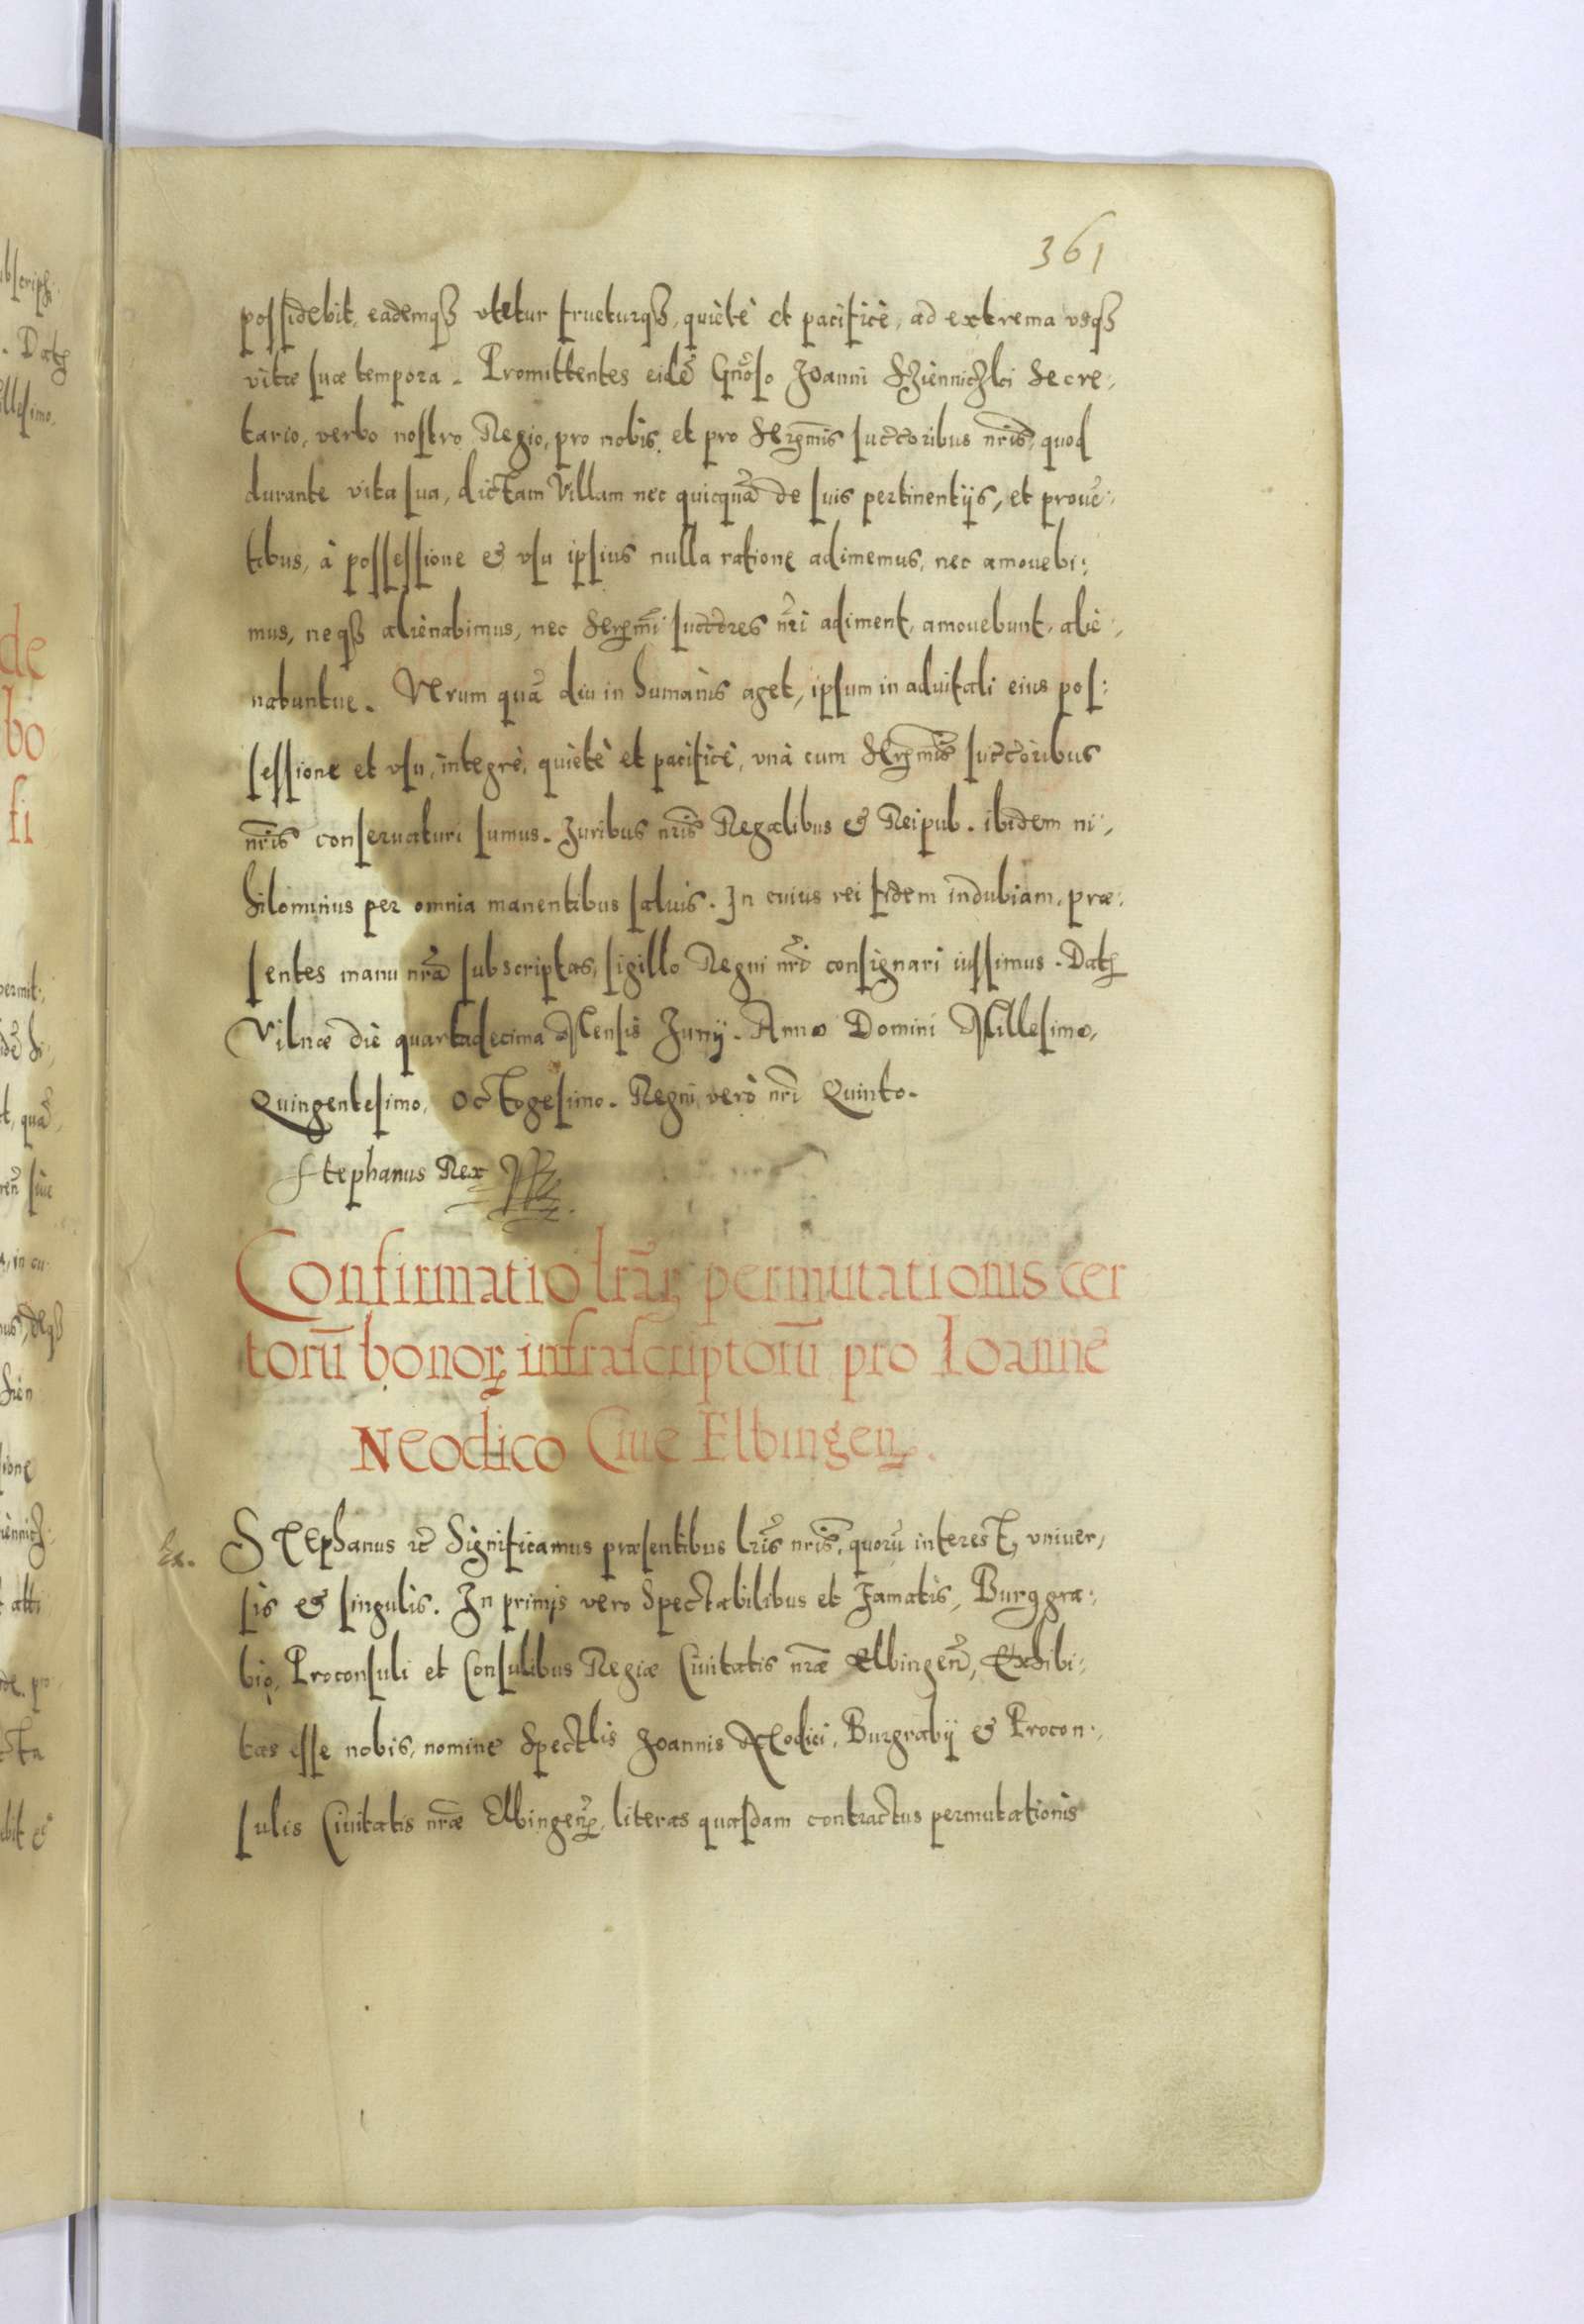 361
possidebit, eademqß vtetur frueturqß, quietè et pacificè, ad extrema vsqß
vitæ suæ tempora. Promittentes eidē Gn̄oso Joanni Sziennicz̨ki Secre:
tario, verbo nostro Regio, pro nobis, et pro Serꝫmis succ̄oribus nr̄is, quod
durante vita sua, dictam Villam nec quicquā de suis pertinentijs, et prouē:
tibus, à possessione & vsu ipsius nulla ratione adimemus, nec amouebi:
mus, neqß alienabimus, nec Serꝫmi succ̄ores nr̄i adiment, amouebunt, alie:
nabuntue. Verum quā diu in humanis aget, ipsum in aduitali eius pos:
sessione et vsu, integrè, quietè et pacificè, vnà cum Serꝫmis succ̄oribus
nr̄is conseruaturi sumus. Juribus nr̄is Regalibus & Reipub. ibidem ni:
hilominus per omnia manentibus saluis. In cuius rei fidem indubiam, præ:
sentes manu nr̄a subscriptas, sigillo Regni nr̄i consignari iussimus. Datꝫ
Vilnæ die quartadecima Mensis Junij. Anno Domini Millesimo,
Quingentesimo, Octogesimo. Regni verò nr̄i Quinto.
Stephanus Rex
Confirmatio lrār̨ permutationis cer
torū bonoꝝ infrascriptorū pro Ioanne
Neodico Ciue Elbingen̨.
Ex. STEphanus ꝛc̄ Significamus præsentibus lr̄is nr̄is, quorū interest, vniuer,
sis & singulis. In primis vero Spectabilibus et Famatis, Burggra:
bio, Proconsuli et Consulibus Regiæ Ciuitatis nr̄æ Elbingen̄, Exhibi:
tas esse nobis, nomine Spectlis Joannis Neodici, Burgrabij & Procon:
sulis Ciuitatis nr̄æ Elbingen̄, literas quasdam contractus permutationis